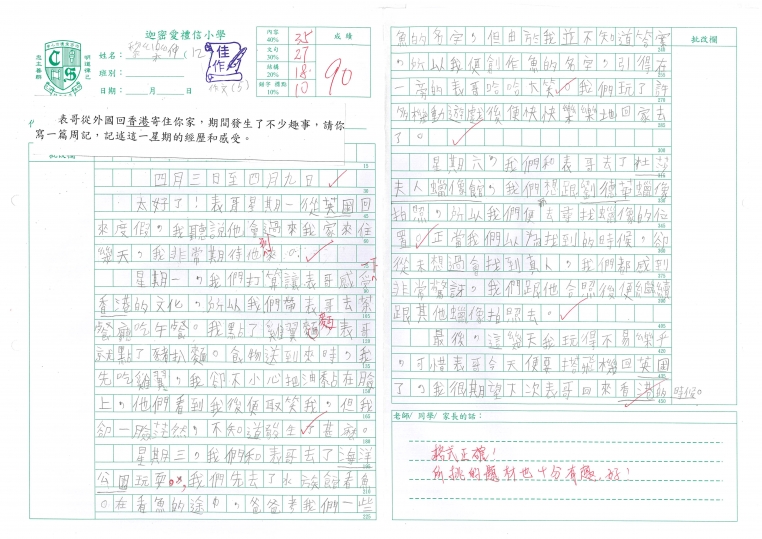 迦密愛禮信小學
明道律己
忠主善群
姓名：
班別：
日期： 月 日
佳作
作文(5)
內容 40% 35
文句 30% 27
結構 20% 18
錯字 標點 10% 10
成績
90
表哥從外國回香港寄住你家，期間發生了不少趣事，請你
寫一篇周記，記述這一星期的經歷和感受。
批改欄
四月三日至四月九日
太好了！表哥星期一從英國回
來度假。我聽說他會過來我家來住
幾天。我非常期待他來到。
星期一，我們打算讓表哥感受
香港的文化，所以我們帶表哥去茶
餐廳吃午餐。我點了雞翼麵，表哥
就點了豬扒麵。食物送到來時，我
先吃雞翼，我卻不小心把油沾在臉
上，他們看到我後便取笑我，但我
卻一臉茫然，不知道發生了甚麼。
星期三，我們和表哥去了海洋
公園玩耍，我們先去了水族館看魚
。在看魚的途中，爸爸考我們一些
魚的名字，但由於我並不知道答案
，所以我便創作魚的名字，引得在
一旁的表哥哈哈大笑。我們玩了許
多機動遊戲後便快快樂樂地回家去
了。
星期六，我們和表哥去了杜莎
夫人蠟像館，我們想跟劉德華蠟像
拍照，所以我們便去尋找蠟像的位
置。正當我們以為找到的時候，卻
從未想過會找到真人，我們都感到
非常驚訝。我們跟他合照後便繼續
跟其他蠟像拍照去。
最後，這幾天我玩得不易樂乎
，可惜表哥今天便要搭飛機回英國
了，我很期望下次表哥回來香港的時候。
批改欄
老師/ 同學/ 家長的話：
格式正確！
所挑的題材也十分有趣，好！